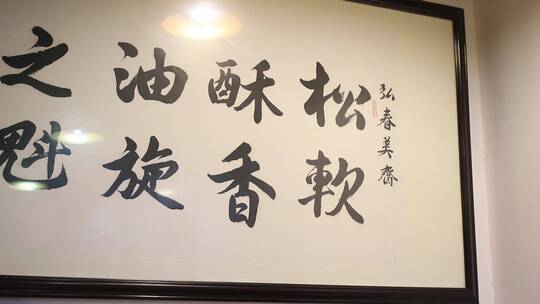 弘春美齋
松軟
酥香
油旋
之魁